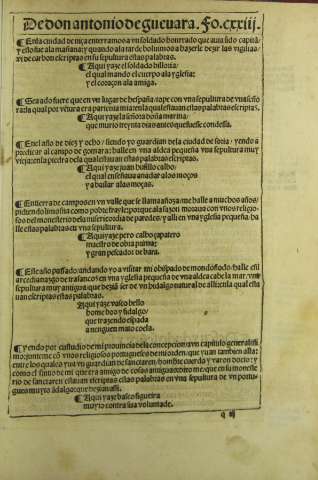 De don antonio de gueuara. Fo.cxxiij.
En la ciudad de niça enterramos a vn soldado honrrado que auia sido capitã
y esto fue a la mañana: y quando a la tarde boluimos a hazerle dezir las vigilias
vi de carbon escriptas en su sepultura estas palabras.
¶ Aqui yaze el soldado billonia:
el qual mando el cuerpo a la yglesia:
y el coraçon a la amiga.
rada la qual por vẽtura era parienta mia: en la qual estauan estas palabras escriptas.
¶ Aqui yaze la señora doña marina:
que murio treynta dias antes que fuesse condessa.
¶ En el año de diez y ocho: siendo yo guardian en la ciudad de soria: yendo a
predicar al campo de gomara: halle en vna aldea pequeña vna sepultura muy
vieja: en la piedra de la qual estauan estas palabras escriptas.
¶ Aqui yaze juan husillo calbo:
el qual enseñaua a nadar a los moços
y a bailar a las moças.
¶ En tierra de campos en vn valle que se llama añoza: me halle a muchos años:
pidiendo limosna como pobre frayle: porque a la sazon moraua con vnos religio-
sos del monesterio dela misericordia de paredes: y alli en vna yglesia pequeña ha-
lle estas palabras en vna sepultura.
¶ Aqui yaze pero calbo çapatero
maestro de obra prima:
y gran pescador de bara.
¶ Este año passado: andando yo a visitar mi obispado de mondoñedo: halle en el
arcedianazgo de trasancos en vna yglesia pequeña de vna aldea cabe la mar: vna
sepultura muy antigua: que dezian ser de vn hidalgo natural de alli: en la qual esta
uan escriptas estas palabras.
Aqui yaze vasco bello
home boo y fidalgo:
que trazendo espada
a ninguen mato coela.
¶ Yendo por custudio de mi prouincia de la concepcion: a vn capitulo generalissi
mo: junteme cõ vnos religiosos portugueses de mi orden: que yuan tambien alla:
entre los quales yua vn guardian de sanctaren: hombre cuerdo y varon docto: y
como el sintio de mi que era amigo de cosas antiguas: dixo me: que en su moneste
rio de sanctaren estauan escriptas estas palabras en vna sepultura de vn portu-
gues muy hidalgo: que dezian assi.
¶ Aqui yaze basco figueira
muyto contra sua voluntade.
q iij